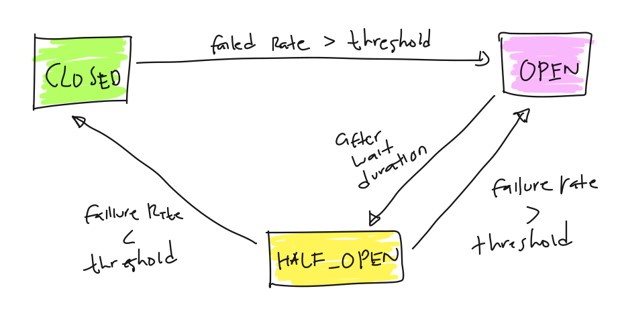 failed Rate > threshold
CLOSED
OPEN
after
wait
duration
failure Rate
<
threshold
failure rate
>
threshold
HALF_OPEN